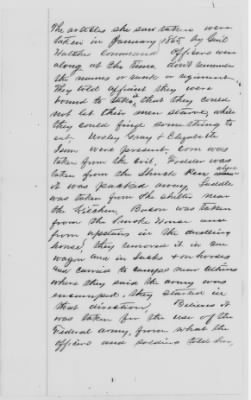 The articles she saw taken were
taken in January 1865, by Genl
command Officers were
along at the time dont remember
the names or rank or regiment
They told affiant they were
bound to take, that they could
not let their men starve while
they could find something to
eat. Wesley Gray & Elizabeth
were present. Corn was
taken from the crib. Fodder was
taken from the
it was packed away. Saddle
was taken from the shelter near
the Kitchen. Bacon was taken
from the Smoke House and
from upstairs in the dwelling
house; they removed it in one
wagon and in sacks & on horses
and carried to camps near
where they said the army was
encamped. they started in
that direction. Believes it
was taken for the use of the
Federal army, from what the
officers and soldiers told her,